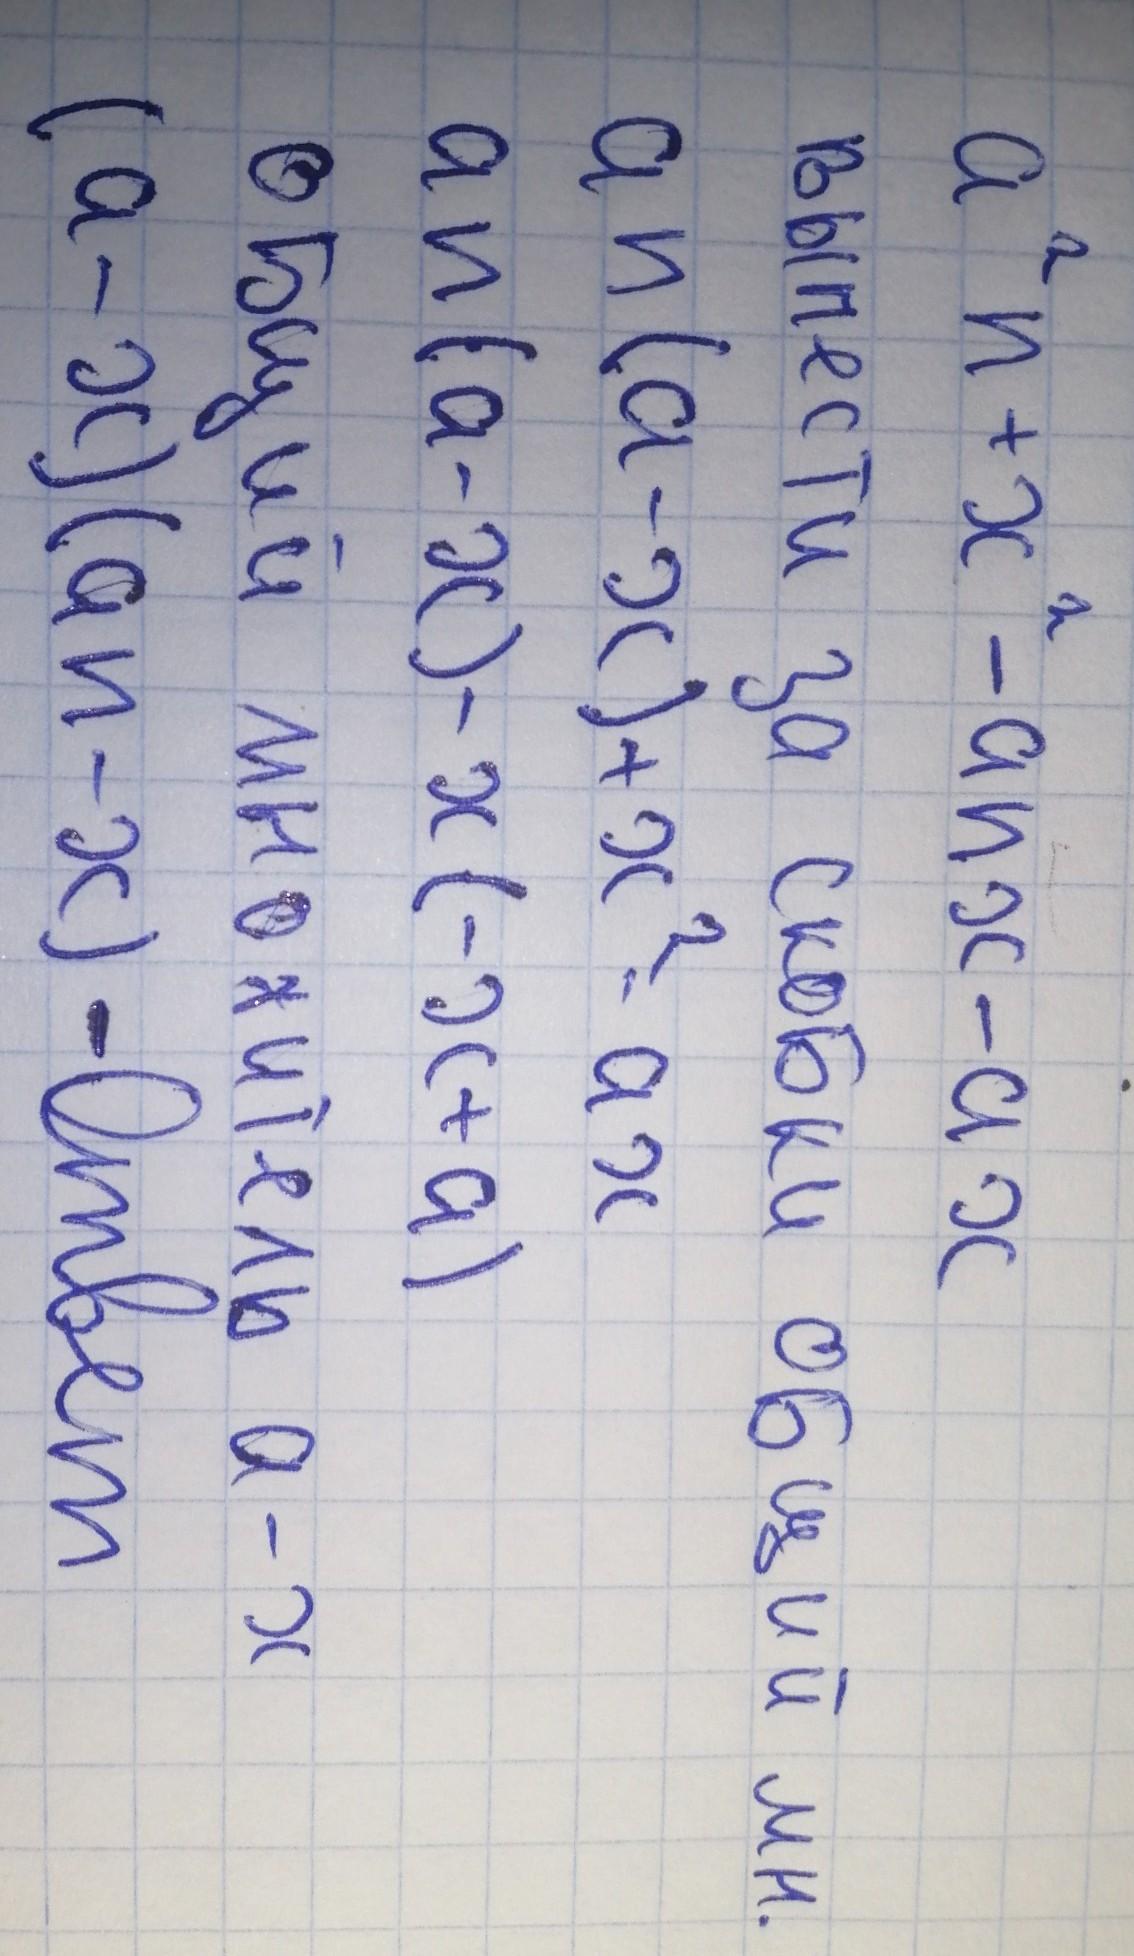 a²n+x²-anx-ax
вынести за скобки общий мн.
an(a-x)+x²-ax
an(a-x)-x(-x+a)
общий множитель a-x
(a-x)(an-x)-Ответ